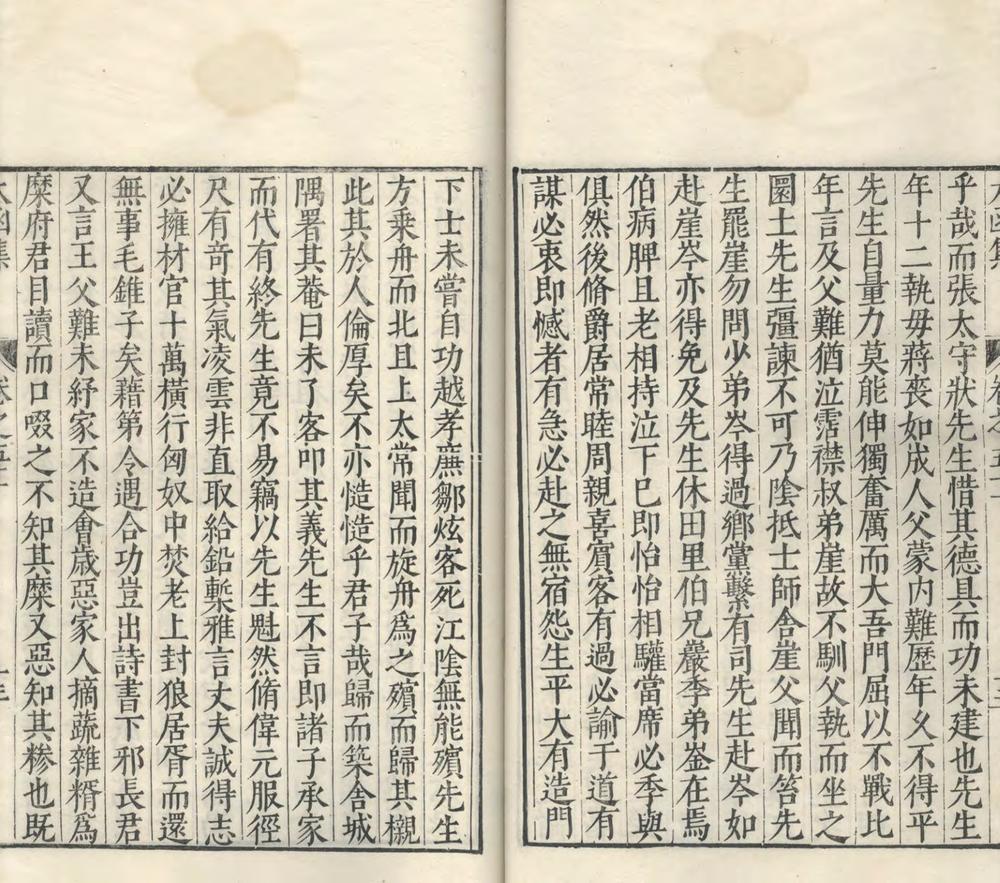 乎哉而張太守狀先生惜其德具而功未建也先生
年十二執毋蔣喪如成人父蒙内難歷年久不得平
先生自量力莫能伸獨奮厲而大吾門屈以不戰比
年言及父難猶泣霑襟叔弟崖故不馴父執而坐之
圜土先生彊諫不可乃陰抵士師舎崖父聞而笞先
生罷崖勿問少弟岑得過鄉黨繫有司先生赴岑如
赴崖岑亦得免及先生休田里伯兄巖季弟崟在焉
伯病脾且老相持泣下巳即怡怡相驩當席必季與
俱然後脩爵居常睦周親喜賓客有過必諭于道有
謀必衷即憾者有急必赴之無宿怨生平大有造門
下士未嘗自功越孝廉鄒炫客死江陰無能殯先生
方乗舟而北且上太常聞而旋舟爲之殯而歸其櫬
此其於人倫厚矣不亦慥慥乎君子哉歸而築舎城
隅署其菴曰未了客叩其義先生不言即諸子承家
而代有終先生竟不易竊以先生魁然脩偉元服徑
尺有竒其氣凌雲非直取給鉛槧雅言丈夫誠得志
必擁材官十萬橫行匈奴中焚老上封狼居胥而還
無事毛錐子矣藉第令遇合功豈出詩書下邪長君
又言王父難未紓家不造會歲惡家人摘蔬雜糈爲
糜府君目讀而口啜之不知其糜又惡知其糝也既